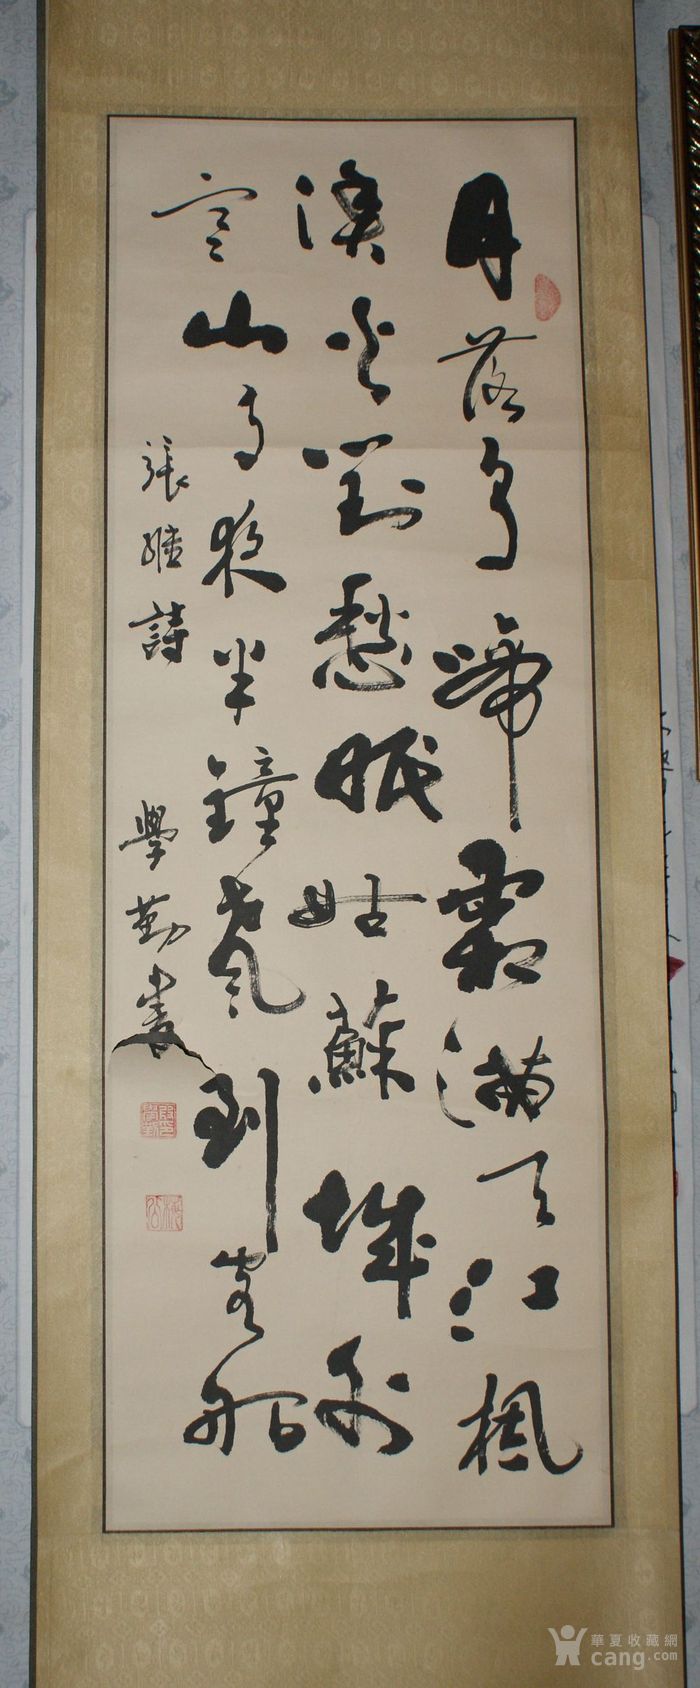 月落烏啼霜滿天江楓
漁火對愁眠姑蘇城外
寒山寺夜半鐘聲到客船
張繼詩 學勤書
華夏收藏網
cang.com